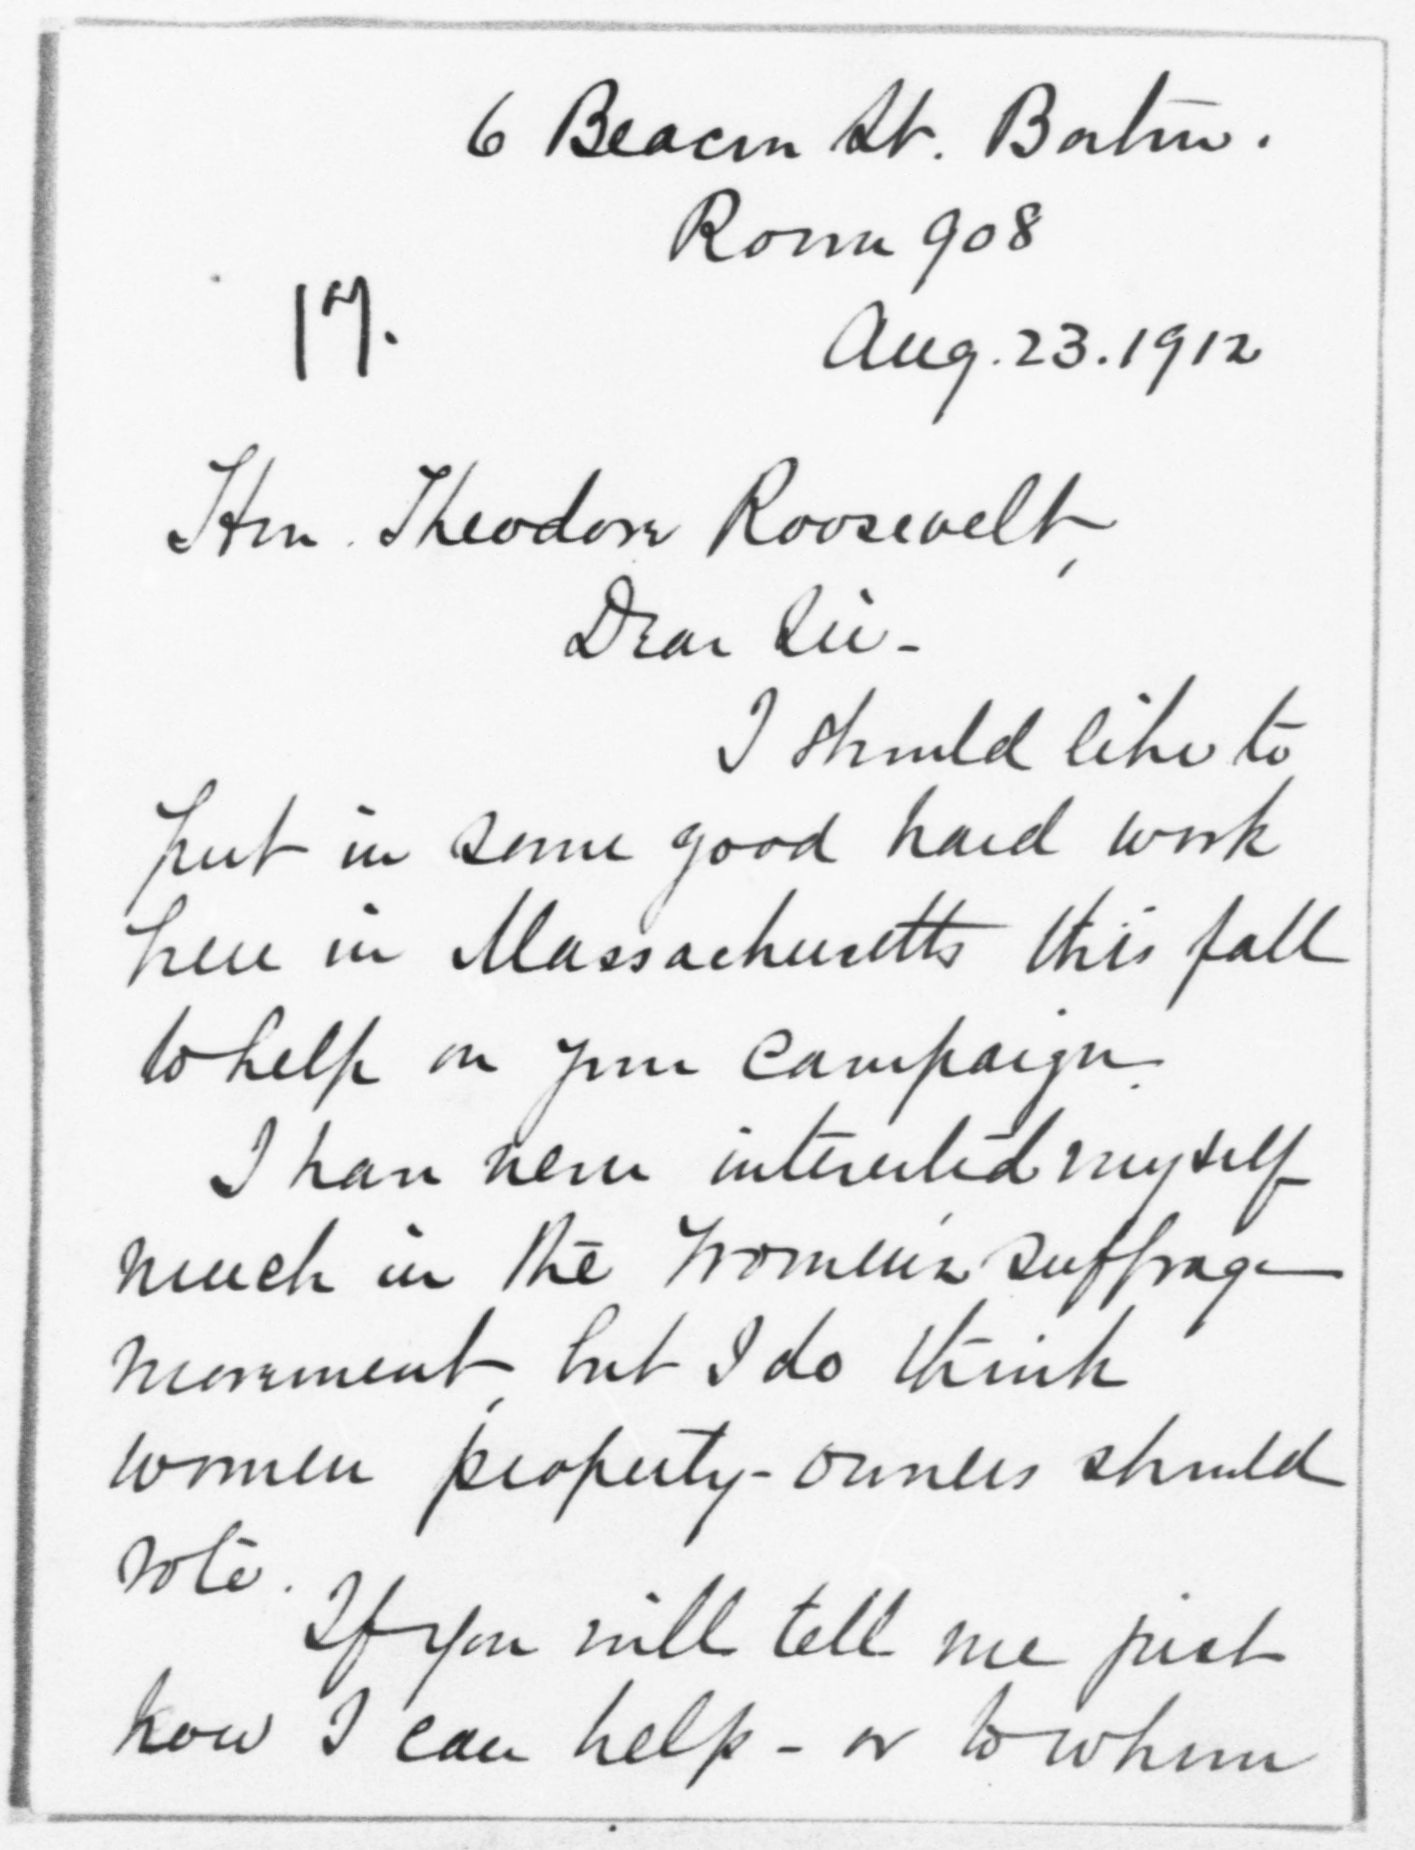 6 Beacon St. Boston.
Room 908
17.
Aug. 23. 1912
Hon. Theodore Roosevelt,
Dear Sir -
I should like to
put in some good hard work
here in Massachusetts this fall
to help on your campaign.
I have never interested myself
much in the Women's suffrage
movement, but I do think
women property-owners should
vote.
If you will tell me just
how I can help - or to whom